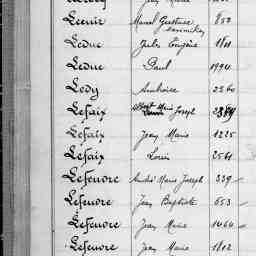 Jean Marie
Lecuir Marcel Gustave 853
Maximilien
Leduc Jules Eugène 1811
Leduc Paul 1994
Ledy Ambroise 2360
Lefaix Albert Marie Joseph
Lefaix Jean Marie 1225
Lefaix Louis 2561
Lefeuvre André Marie Joseph 339
Lefeuvre Jean Baptiste 653
Lefeuvre Jean Marie 1464
Lefeuvre Jean Marie 1812